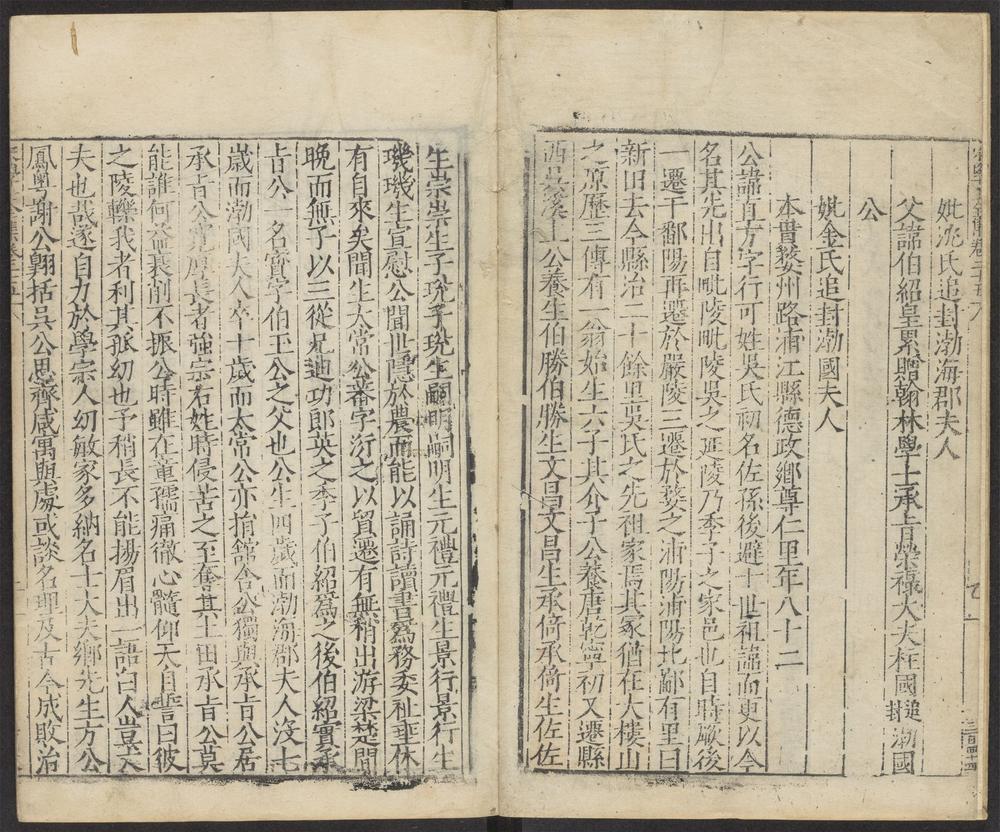 妣沈氏追封渤海郡夫人
父諱伯紹皇累贈翰林學士承旨榮祿大夫柱國追封渤國
公
妣金氏追封渤國夫人
本貫婺州路浦江縣德政鄉尊仁里年八十二
公諱直方字行可姓吳氏初名佐孫後避十世祖諱而更以今
名其先出自毗陵毗陵吳之延陵乃季子之家邑也自時厥後
一遷于鄱陽再遷於嚴陵三遷於婺之浦陽浦陽北鄙有里曰
新田去今縣治二十餘里吳氏之先祖家焉其冢猶在大樓山
之原歷三傳有一翁始生六子其介子公養唐乾寧初又遷縣
西吳溪上公養生伯勝伯勝生文昌文昌生承倚承倚生佐佐
生崇崇生子玧子玧生嗣明嗣明生元禮元禮生景行景行生
璣璣生宣慰公聞世隱於農而能以誦詩讀書爲務委祉垂休
有自來矣聞生太常公蕃字衍之以貿遷有無稍出游梁楚間
晚而無子以三從兄迪功郎英之季子伯紹爲之後伯紹實承
旨公一名實字伯玉公之父也公生四歲而渤海郡夫人沒七
歲而渤國夫人卒十歲而太常公亦捐館舍公獨與承旨公居
承旨公寬厚長者強宗右姓時侵苦之至奪其土田承旨公莫
能誰何益衰削不振公時雖在童孺痛徹心髓仰天自誓曰彼
之陵轢我者利其孤幼也予稍長不能揚眉出一語白人豈大
夫也哉遂自力於學宗人幼敏家多納名士大夫鄉先生方公
鳳粵謝公翱括吳公思齊咸寓與處或談名理及古今成敗治